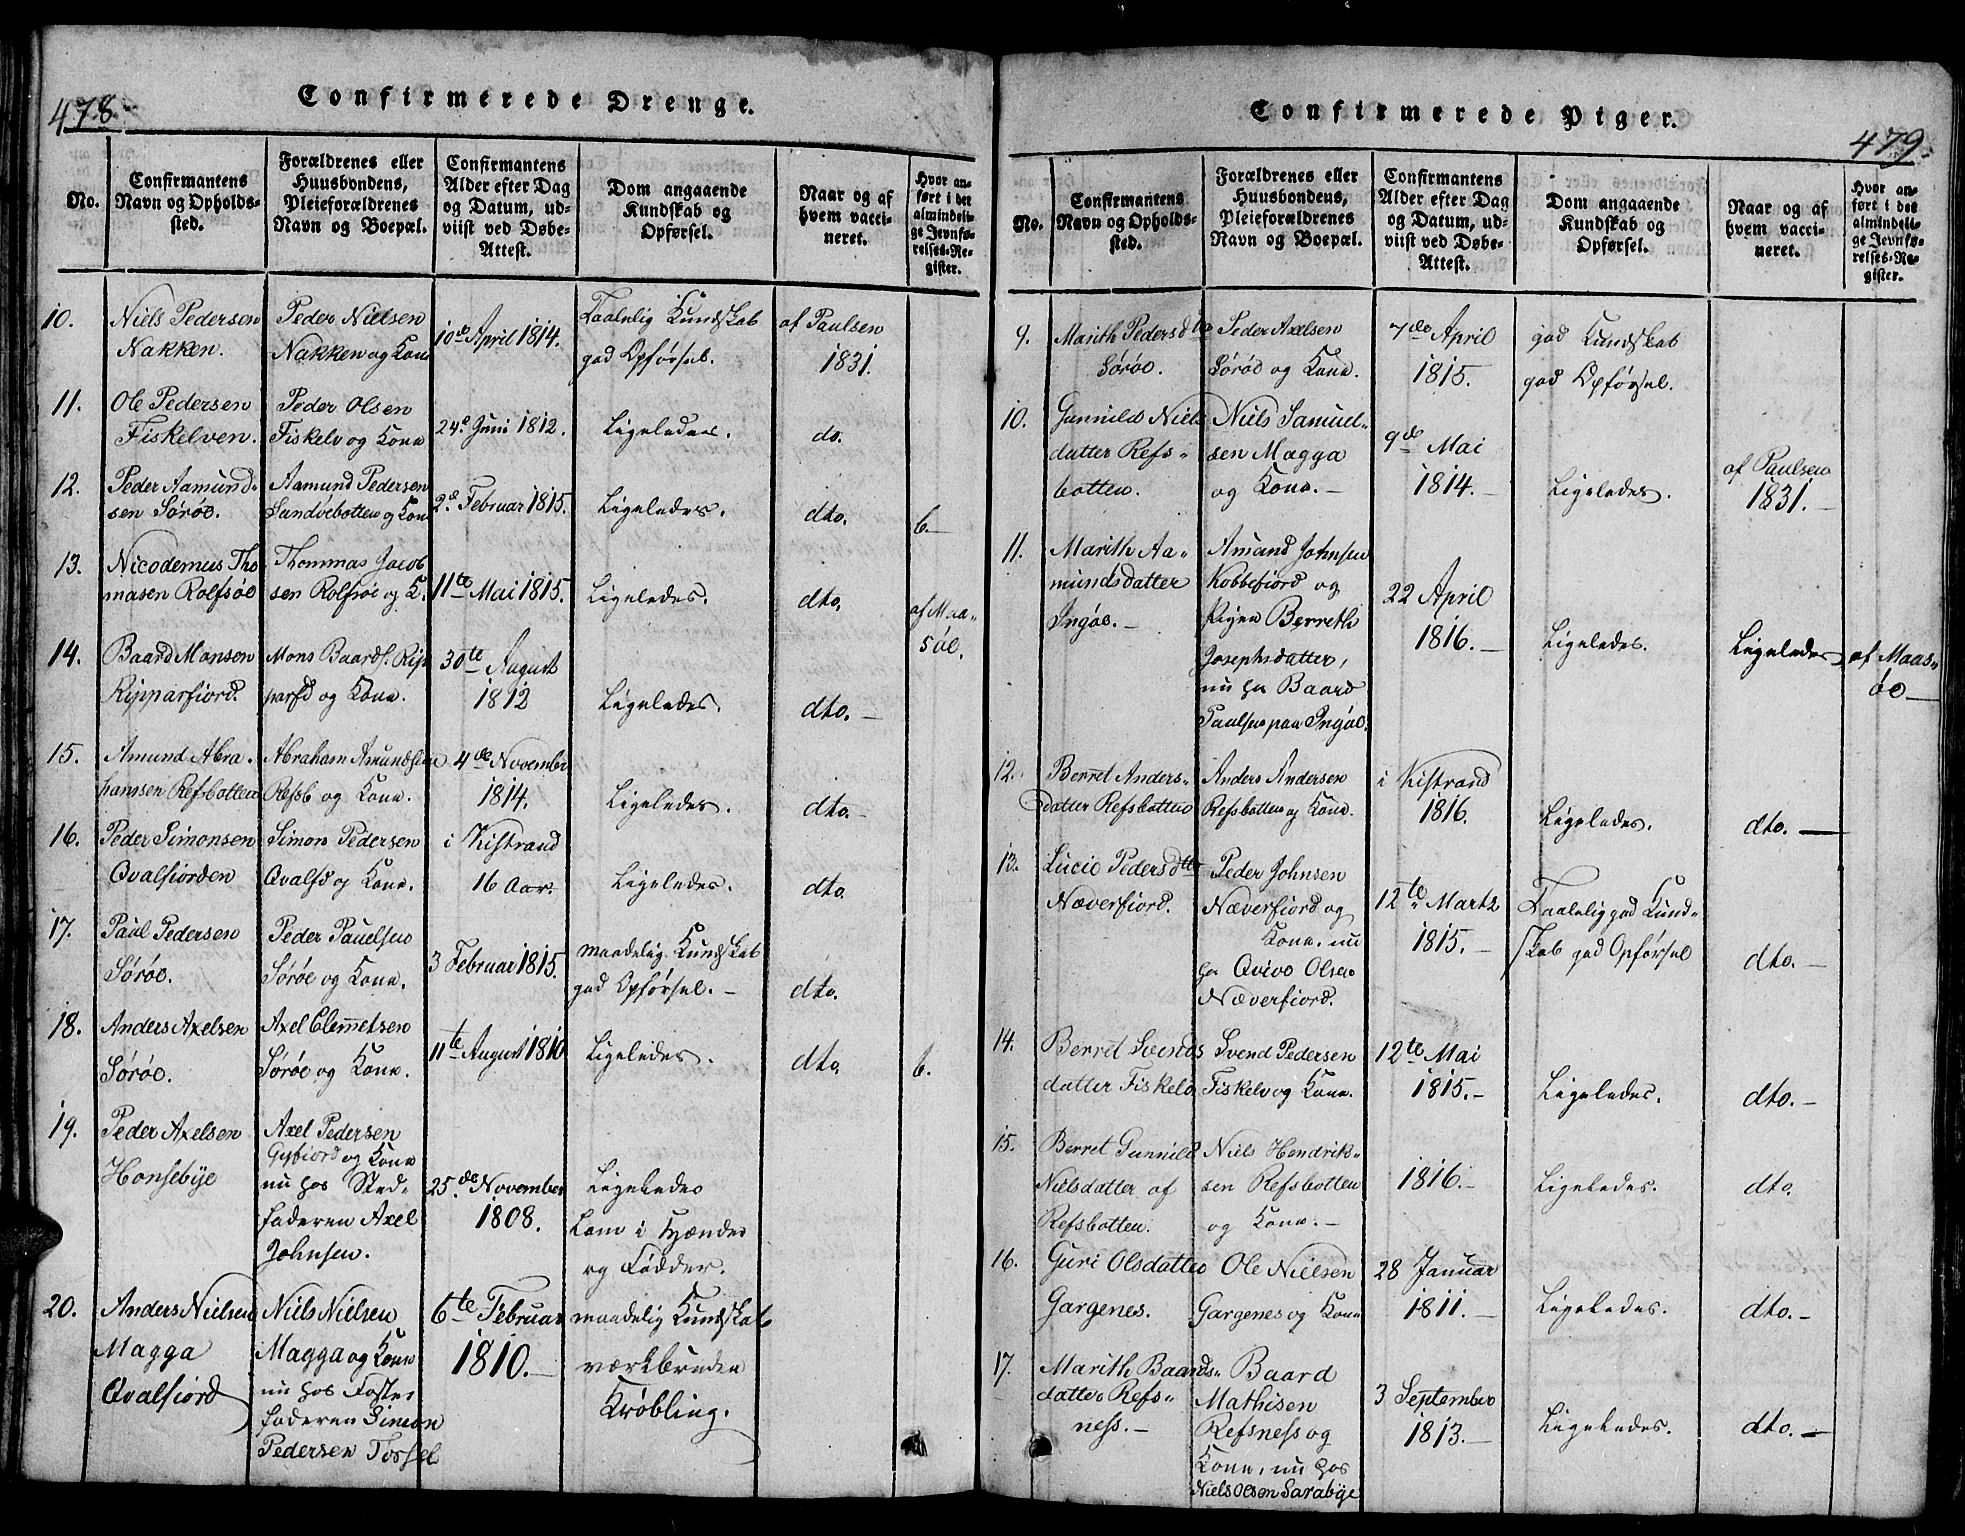 478.
Confirmerede Drenge.
No.
Confirmantens
Navn og Opholds-
sted.
Forældrenes eller
Huusbondens,
Pleieforældrenes
Navn og Boepæl.
Confirmantens
Alder efter Dag
og Datum, ud-
viist ved Døbe-
Attest.
Dom angaaende
Kundskab og
Opførsel.
Naar og af
hvem vacci-
neret.
Hvor an-
ført i det
almindeli-
ge Jevnfø-
relses-Re-
gister.
10.
Niels Pedersen
Nakken.
Peder Nielsen
Nakken og Kone
10de April 1814.
Taalelig Kundskab
god Opførsel.
af Paulsen
1831.
11.
Ole Pedersen
Fiskelven.
Peder Olsen
Fiskelv og Kone
24de Juni 1812.
Ligeledes.
do.
12.
Peder Aamund-
sen Sørøe.
Aamund Pedersen
Sandøebotten og Kone
2d. Februar 1815.
Ligeledes.
dto.
6.
13.
Nicodemus Tho
masen Rolfsøe
Thommas Jacob
sen Rolfsøe og K.
11te Mai 1815.
Ligeledes.
dto.
af Maa-
søe.
14.
Baard Monsen
Ripparfiord.
Mons Baards. Rip
parfd og Kone.
30te August
1812
Ligeledes.
dto.
15.
Amund Abra-
hamsen Refsbotten
Abraham Amundsen
Refsb og Kone.
4de November
1814.
Ligeledes.
dto.
16.
Peder Simonsen
Qvalfiorden
Simon Pedersen
Qvalfd og Kone.
i Kistrand
16 Aar.
Ligeledes.
dto.
17.
Paul Pedersen
Sørøe.
Peder Pauelsen
Sørøe og Kone.
3 Februar 1815.
maadelig Kundskab
god Opførsel.
dto.
18.
Anders Axelsen
Sørøe.
Axel Clemetsen
Sørøe og Kone.
11te August 1810
Ligeledes.
dto.
6.
19.
Peder Axelsen
Honsebye
Axel Pedersen
og Kone
nu hos Sted-
faderen Axel
Johnsen.
25de November
1808.
Ligeledes
Lam i Hænder
og Fødder.
20.
Anders Nielsen
Magga
Qvalfiord
Niels Nielsen
Magga og Kone
nu hos Foster
faderen Simon
Pedersen
6te Februar
1810.
maadelig Kundskab
værkbruden
Krøbling.
479.
Confirmerede Piger.
No.
Confirmantens
Navn og Opholds-
sted.
Forældrenes eller
Huusbondens,
Pleieforældrenes
Navn og Boepæl.
Confirmantens
Alder efter Dag
og Datum, ud-
viist ved Døbe-
Attest.
Dom angaaende
Kundskab og
Opførsel.
Naar og af
hvem vacci-
neret.
Hvor an-
ført i det
almindeli-
ge Jevnfø-
relses-Re-
gister.
9.
Marith Pedersdtr
Sørøe.
Peder Axelsen
Sørøe og Kone.
7de April
1815.
god Kundskab
god Opførsel.
10.
Gunnild Niels
datter Refs-
botten.
Niels Samuel-
sen Magga
og Kone.
9de Mai
1814.
Ligeledes.
af Paulsen
1831.
11.
Marith Aa-
mundsdatter
Ingøe.
Amund Johnsen
Kobbefiord og
Pigen Berreth
Josephsdatter,
nu hos Baard
Paulsen paa Ingøe.
22 April
1816.
Ligeledes.
Ligeledes
af Maas-
øe
12.
Berret Anders-
datter Refsbotten
Anders Andersen
Refsbotten og Kone.
i Kistrand
1816.
Ligeledes.
dto.
13.
Lucie Pedersdtr
Næverfiord.
Peder Johnsen
Næverfiord og
Kone, nu
hos Qvivo Olsen
Næverfiord.
12te Martz
1815.
Taalelig god Kund-
skab god Opførsel
dto.
14.
Berret Svends
datter Fiskelv
Svend Pedersen
Fiskelv og Kone.
12te Mai
1815.
Ligeledes.
dto.
15.
Berret Gunnild
Nielsdatter af
Refsbotten.
Niels Hendrik-
sen Refsbotten
og Kone.
1816.
Ligeledes.
dto.
16.
Guri Olsdatter
Gargenes.
Ole Nielsen
Gargenes og Kone
28 Januar
1811.
Ligeledes.
dto.
17.
Marith Baards-
datter Refs-
ness.
Baard
Mathisen
Refsness og
Kone, nu hos
Niels Olsen Sarabye
3 September
1813.
Ligeledes.
dto.